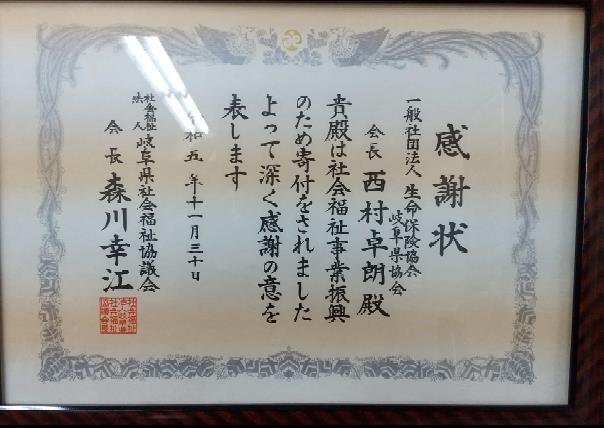 感謝状
一般社団法人 生命保険協会
岐阜県協会
会長 西村卓朗殿
貴殿は社会福祉事業振興
のため寄付をされました
よって深く感謝の意を
表します
和五年十一月三十日
社会福祉
法人 岐阜県社会福祉協議会
会長 森川幸江